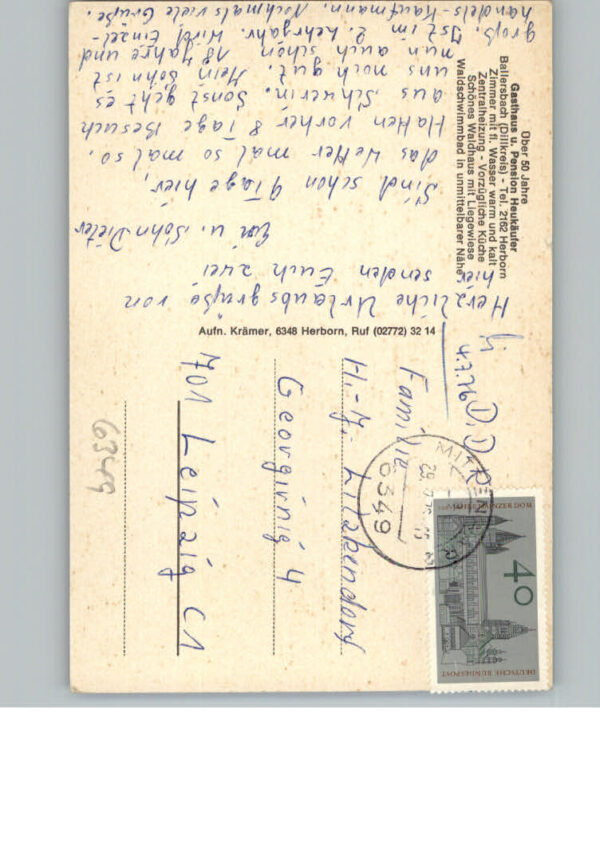 Über 50 Jahre
Gasthaus u. Pension Heukäufer
Ballersbach (Dillkreis) - Tel. 2162 Herborn
Zimmer mit fl. Wasser warm und kalt
Zentralheizung - Vorzügliche Küche
Schönes Waldhaus mit Liegewiese
Waldschwimmbad in unmittelbarer Nähe
Herzliche Urlaubsgrüße von
hier senden Euch zwei
u. Sohn Dieter
Sind schon 9 Tage hier,
das Wetter mal so mal so.
Hatten vorher 8 Tage Besuch
aus Schwerin. Sonst geht es
uns noch gut. Mein Sohn ist
nun auch schon 18 Jahre und
groß. Ist im 2. Lehrjahr. Wird Einzel-
handels-Kaufmann. Nochmals viele Grüße.
Aufn. Krämer, 6348 Herborn, Ruf (02772) 32 14
Familie
H.-J. Litzkendorf
Georgiring 4
701 Leipzig C1
6349
6349
40
DEUTSCHE BUNDESPOST
1000 JAHRE MAINZER DOM